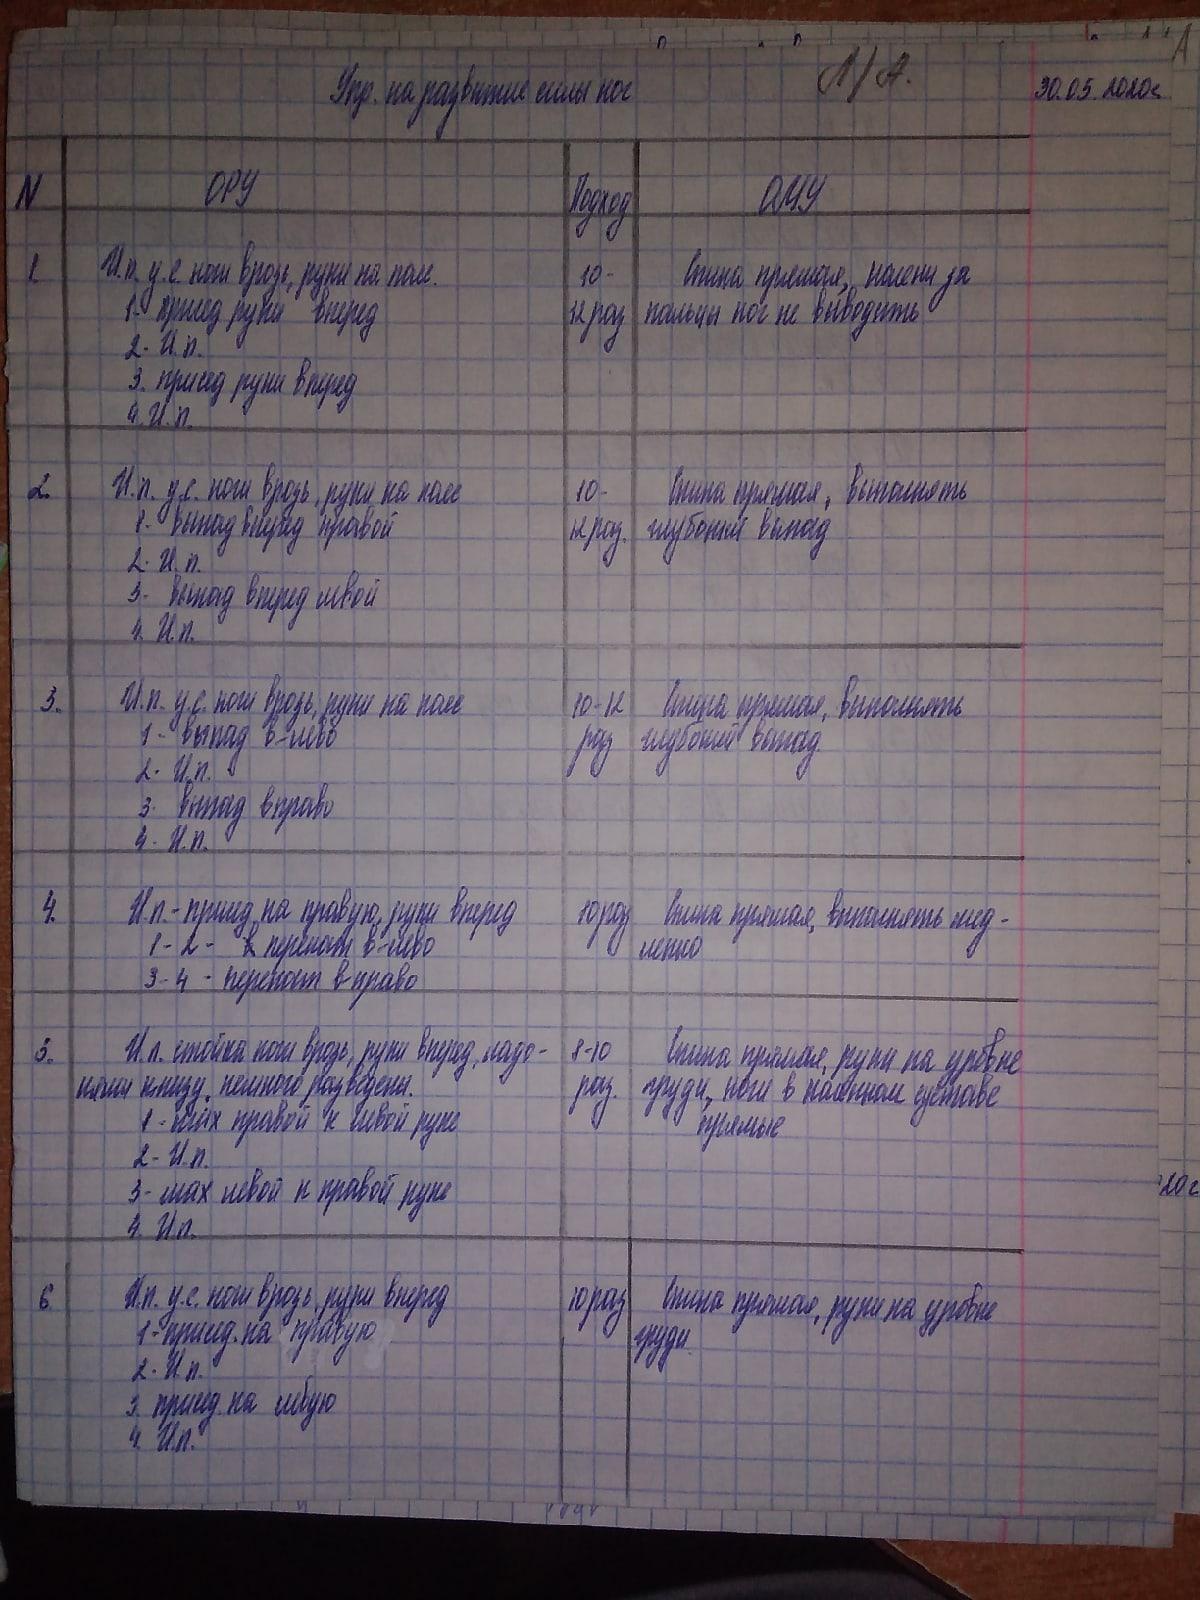 Упр. на развитие силы ног
Л/А.
30.05.2020г
N ОРУ Подход ОМУ
1. И.п. у.с. ноги врозь, руки на поясе. 10- Спина прямая, колени за
1- присед руки вперед 12 раз пальцы ног не выводить
2- И.п.
3. присед руки вперед
4. И.п.
2. И.п. у.с. ноги врозь, руки на поясе 10- Спина прямая, выполнять
1- выпад вперед правой 12 раз. глубокий выпад
2- И.п.
3- выпад вперед левой
4. И.п.
3. И.п. у.с. ноги врозь, руки на поясе 10-12 Спина прямая, выполнять
1- выпад в-лево раз глубокий выпад
2- И.п.
3- выпад вправо
4- И.п.
4. И.п.- присед на правую, руки вперед 10 раз Спина прямая, выполнять мед-
1-2- перекат в-лево ленно
3-4 - перекат в-право
5. И.п. стойка ноги врозь, руки вперед, ладо- 8-10 Спина прямая, руки на уровне
нями книзу, немного разведены. раз. груди, ноги в коленном суставе
1- мах правой к левой руке прямые
2- И.п.
3- мах левой к правой руке
4. И.п.
20г
6 И.п. у.с. ноги врозь, руки вперед 10 раз Спина прямая, руки на уровне
1- присед на правую груди.
2- И.п.
3. присед на левую
4. И.п.